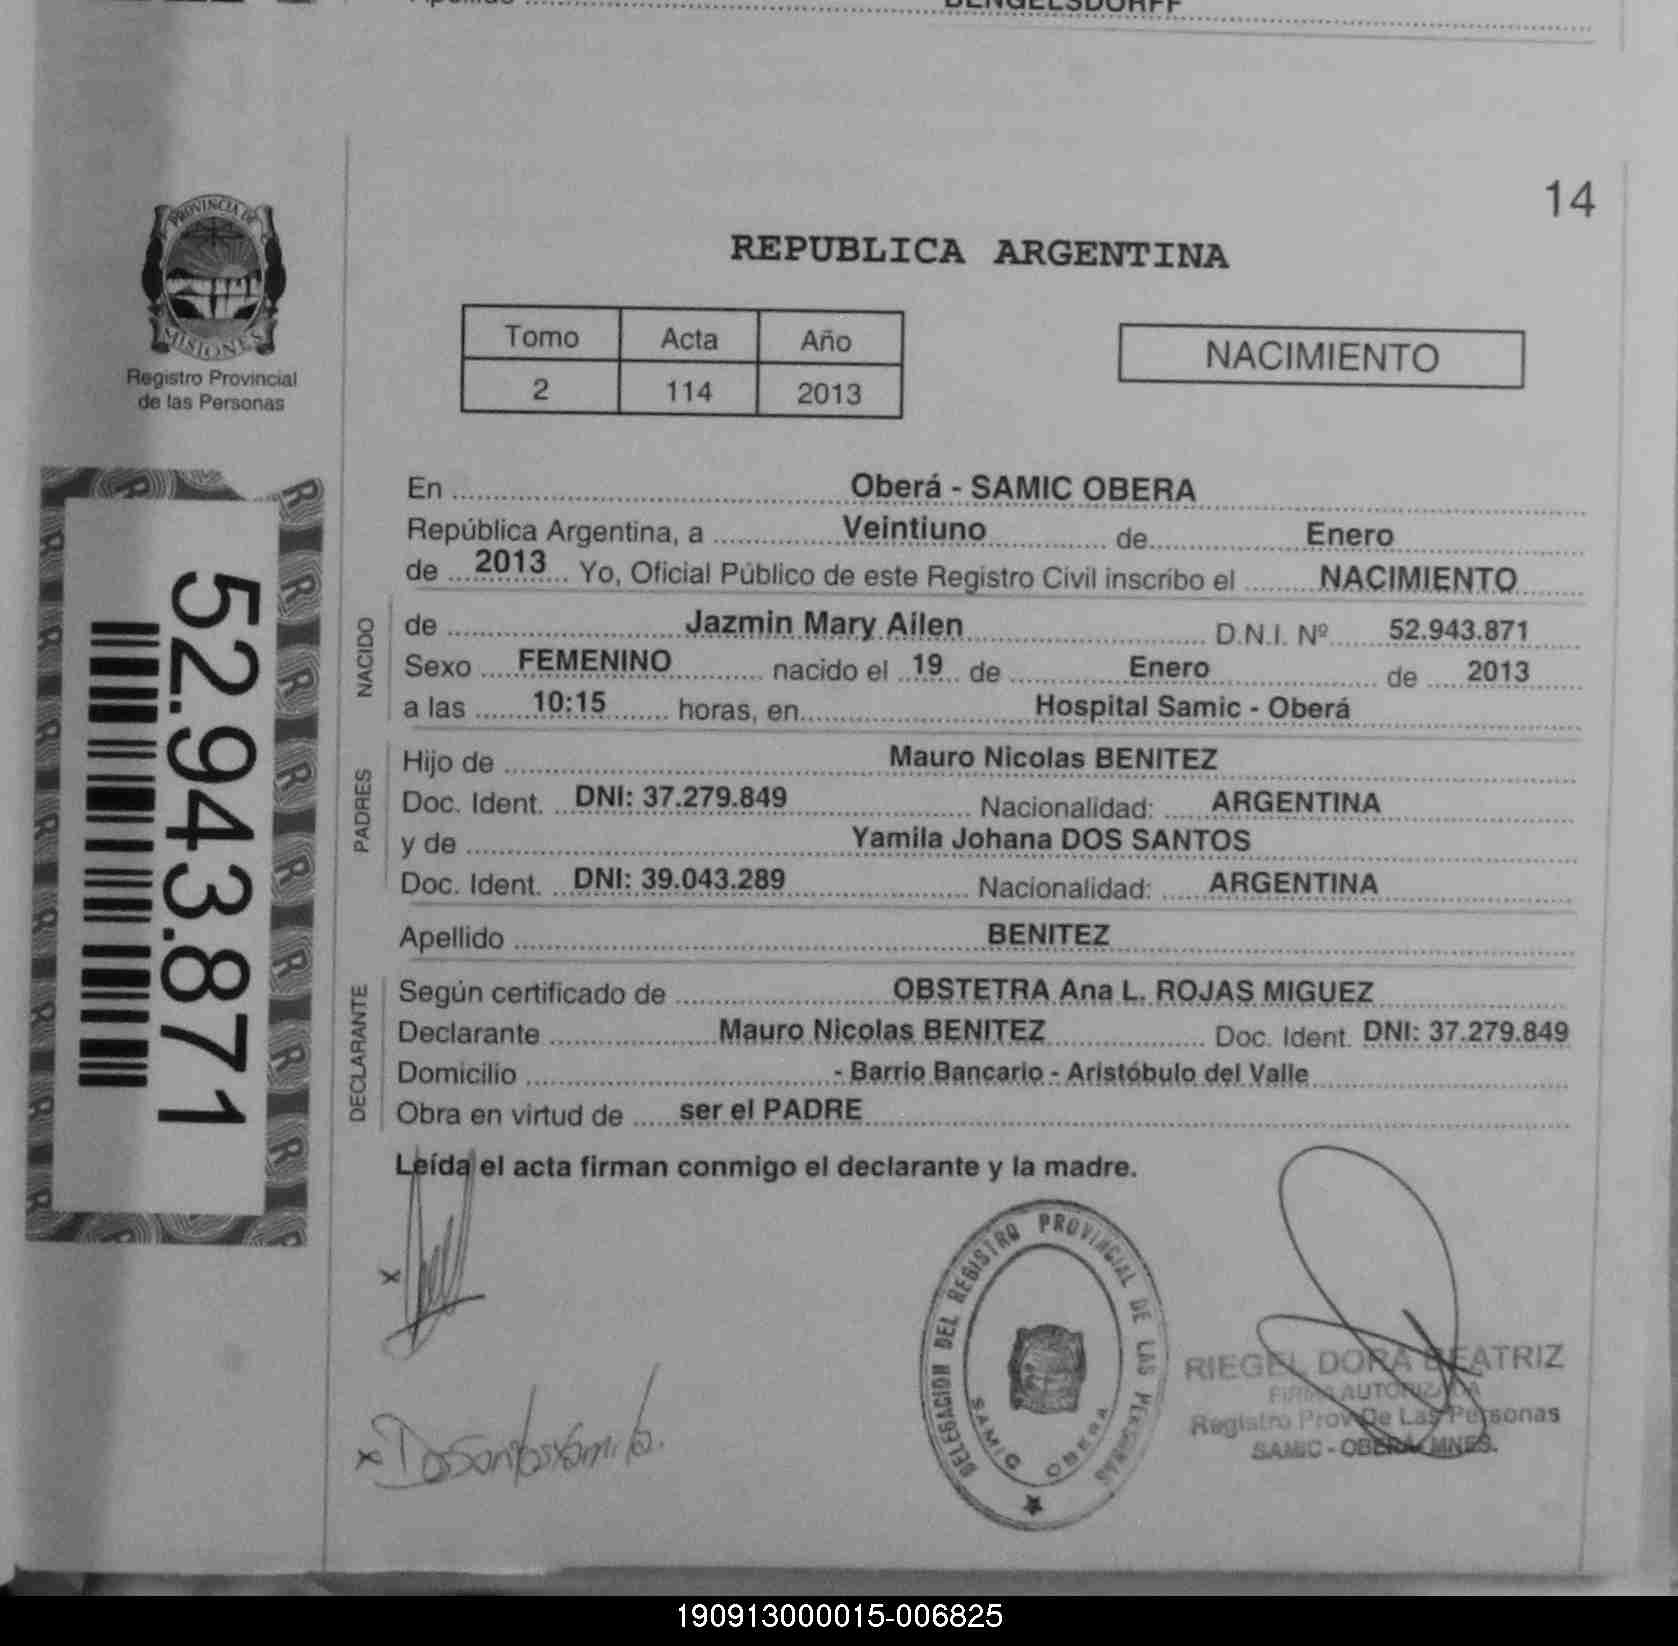 Apellido BENGELSDORFF
14
PROVINCIA DE
MISIONES
Registro Provincial
de las Personas
REPUBLICA ARGENTINA
Tomo Acta Año
2 114 2013
NACIMIENTO
52.943.871
En Oberá - SAMIC OBERA
República Argentina, a Veintiuno de Enero
de 2013 Yo, Oficial Público de este Registro Civil inscribo el NACIMIENTO
NACIDO
de Jazmin Mary Ailen D.N.I. Nº 52.943.871
Sexo FEMENINO nacido el 19 de Enero de 2013
a las 10:15 horas, en Hospital Samic - Oberá
PADRES
Hijo de Mauro Nicolas BENITEZ
Doc. Ident. DNI: 37.279.849 Nacionalidad: ARGENTINA
y de Yamila Johana DOS SANTOS
Doc. Ident. DNI: 39.043.289 Nacionalidad: ARGENTINA
Apellido BENITEZ
DECLARANTE
Según certificado de OBSTETRA Ana L. ROJAS MIGUEZ
Declarante Mauro Nicolas BENITEZ Doc. Ident. DNI: 37.279.849
Domicilio - Barrio Bancario - Aristóbulo del Valle
Obra en virtud de ser el PADRE
Leída el acta firman conmigo el declarante y la madre.
x
x Dos Santos Yamila.
DELEGACION DEL REGISTRO PROVINCIAL DE LAS PERSONAS
SAMIC OBERA
RIEGEL DORA BEATRIZ
FIRMA AUTORIZADA
Registro Prov. De Las Personas
SAMIC - OBERÁ - MNES.
190913000015-006825